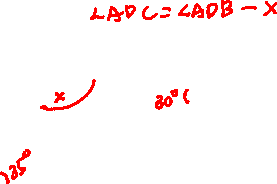 ∠ADC = ∠ADB - x
x
80° (
135°